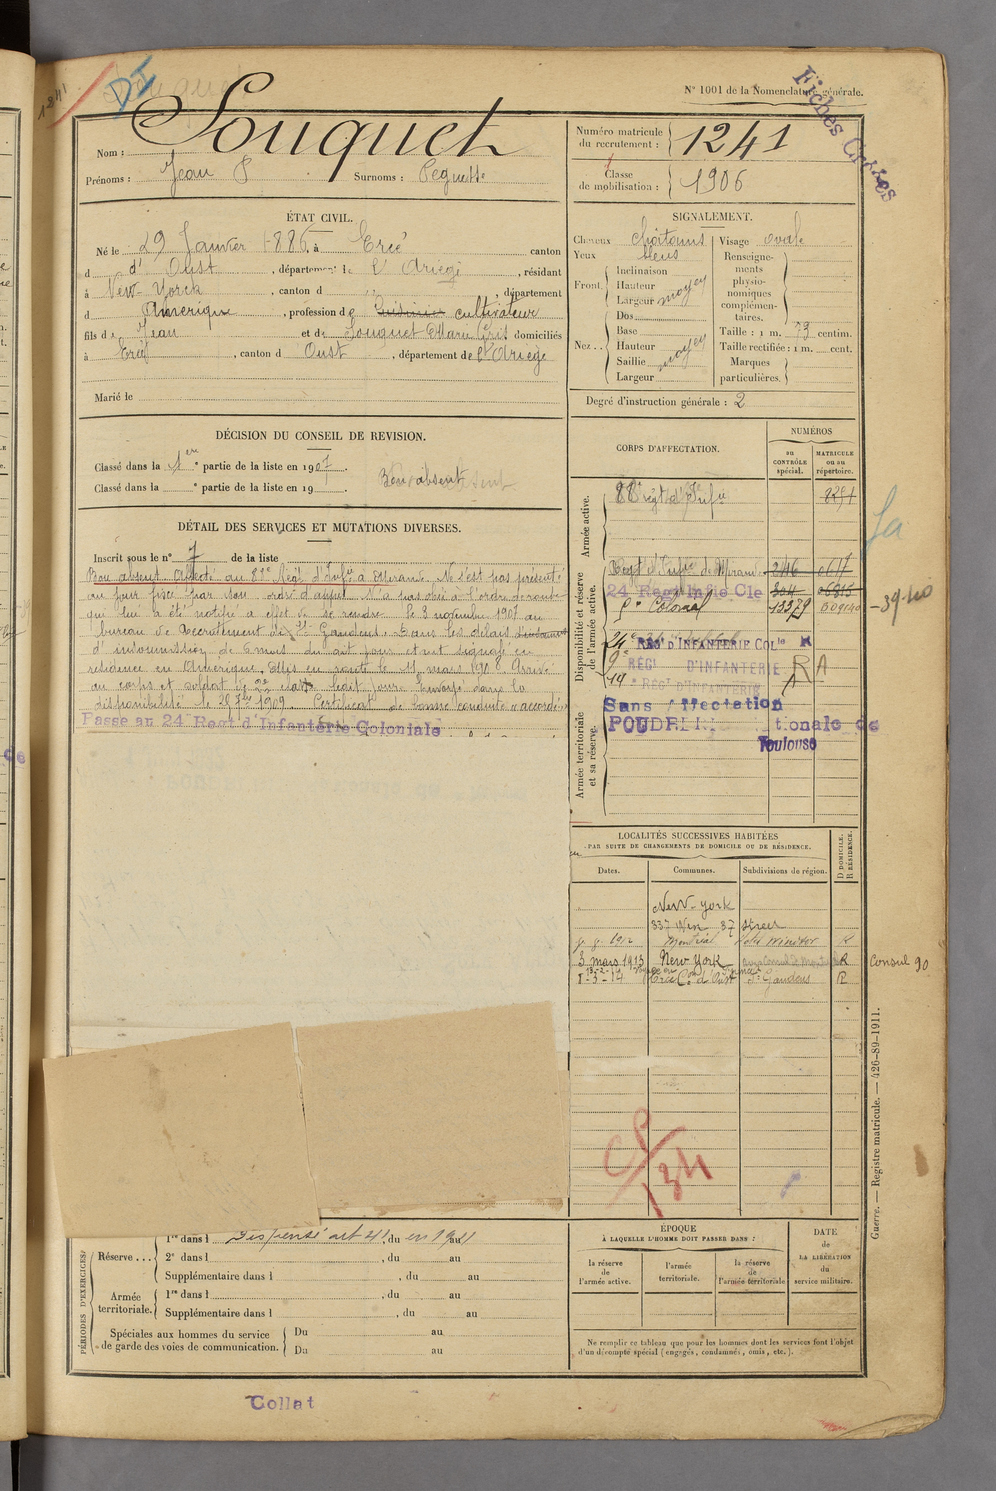 1241
DI
N° 1001 de la Nomenclature générale.
Fiches Croisées
Nom : Souquet
Prénoms : Jean P Surnoms :
Numéro matricule du recrutement : 1241
Classe de mobilisation : 1906
ÉTAT CIVIL.
Né le 29 Janvier 1886, à Ercé canton
d d' Oust, département de l'Ariège, résidant
à New-Yorck, canton d ,, , département
d Amérique, profession de cultivateur
fils de Jean et de Souquet Marie domiciliés
à Ercé, canton d Oust, département de l'Ariège
Marié le
SIGNALEMENT.
Cheveux châtains
Yeux bleus
Front. Inclinaison
Hauteur
Largeur moyen
Nez.. Dos
Base
Hauteur
Saillie moyen
Largeur
Visage ovale
Renseignements physionomiques complémentaires.
Taille : 1 m. 73 centim.
Taille rectifiée : 1 m. cent.
Marques particulières.
Degré d'instruction générale : 2
DÉCISION DU CONSEIL DE REVISION.
Classé dans la 1ère partie de la liste en 1907.
Classé dans la ° partie de la liste en 19 .
Bon absent
DÉTAIL DES SERVICES ET MUTATIONS DIVERSES.
Inscrit sous le n° 7 de la liste
Bon absent. Affecté au 88e Régt d'Infie à Mirande. Ne s'est pas présenté
au jour fixé par son ordre d'appel. N'a pas obéi à l'ordre de route
qui lui a été notifié à effet de se rendre le 3 novembre 1907 au
bureau de Recrutement de St Gaudens. Dans les délais
d'insoumission de 6 mois du fait pour étant signalé en
résidence en Amérique. Mis en route le 11 mars 1908. Arrivé
au corps et soldat de 2e classe ledit jour. Envoyé dans la
disponibilité le 25 7bre 1909. Certificat de bonne conduite "accordé"
Passé au 24 Regt d'Infanterie Coloniale
CORPS D'AFFECTATION.
NUMÉROS
au CONTRÔLE spécial.
MATRICULE ou au répertoire.
Armée active.
88e régt d'Infie 8251
Disponibilité et réserve de l'armée active.
Regt d'Infie de Mirande 246 017
24 Regt Infie Cle 304
Colonial 13379
39-40
24e RÉGt D'INFANTERIE COLle R
9e RÉGt D'INFANTERIE RA
14e RÉGt D'INFANTERIE
Armée territoriale et sa réserve.
Sans Affectation
POUDRE tionale de
Toulouse
LOCALITÉS SUCCESSIVES HABITÉES
PAR SUITE DE CHANGEMENTS DE DOMICILE OU DE RÉSIDENCE.
Dates.
Communes.
Subdivisions de région.
D DOMICILE. R RÉSIDENCE.
New-York
337 West 37 Street
1912 Montréal Hotel Windsor R
3 mars 1913 New York R
Consul 90
1-3-14 Ercé Con d'Oust St Gaudens R
CP
134
PÉRIODES D'EXERCICES.
Réserve... 1re dans l Dispensé art 41, du en 1911 au
2e dans l , du au
Supplémentaire dans l , du au
Armée territoriale. 1re dans l , du au
Supplémentaire dans l , du au
Spéciales aux hommes du service de garde des voies de communication. Du au
Du au
ÉPOQUE
À LAQUELLE L'HOMME DOIT PASSER DANS :
la réserve de l'armée active.
l'armée territoriale.
la réserve de l'armée territoriale
DATE de LA LIBÉRATION du service militaire.
Ne remplir ce tableau que pour les hommes dont les services font l'objet
d'un décompte spécial (engagés, condamnés, omis, etc.).
Guerre. — Registre matricule. — 426-89-1911.
Collat